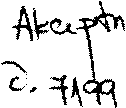 Akceptn
č. 7199